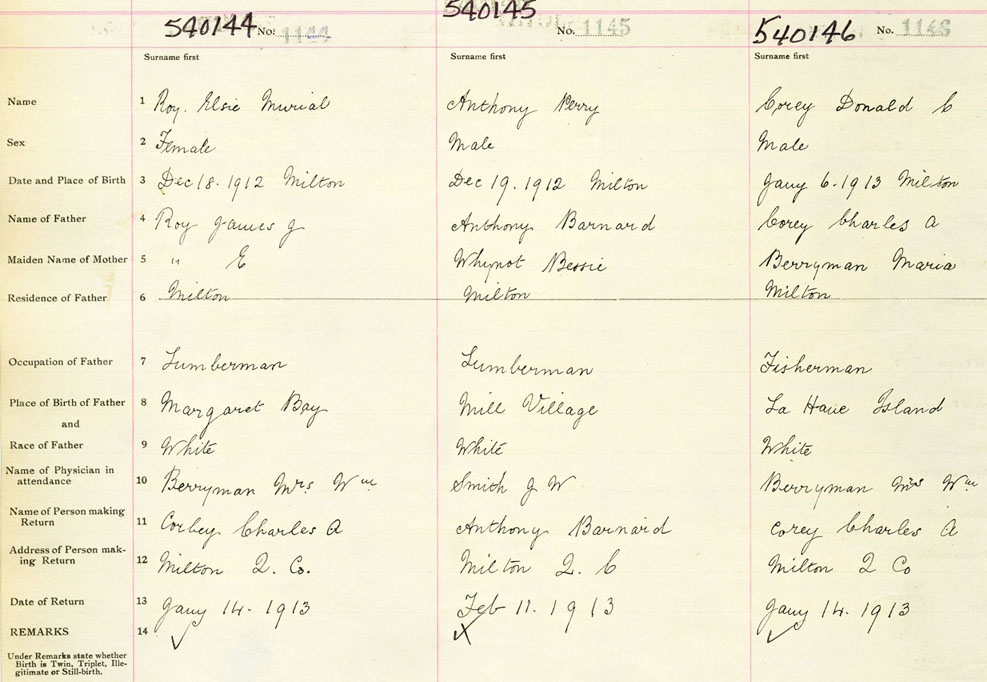 540144 No. 1144 540145 No. 1145 540146 No. 1146
Surname first Surname first Surname first
Name 1 Roy. Elsie Murial Anthony Perry Corey Donald C
Sex 2 Female Male Male
Date and Place of Birth 3 Dec 18. 1912 Milton Dec 19. 1912 Milton Jany 6. 1913 Milton
Name of Father 4 Roy James J Anthony Barnard Corey Charles A
Maiden Name of Mother 5 " E Whynot Bessie Berryman Maria
Residence of Father 6 Milton Milton Milton
Occupation of Father 7 Lumberman Lumberman Fisherman
Place of Birth of Father 8 Margaret Bay Mill Village La Have Island
and
Race of Father 9 White White White
Name of Physician in
attendance 10 Berryman Mrs Wm Smith J W Berryman Mrs Wm
Name of Person making
Return 11 Corbey Charles A Anthony Barnard Corey Charles A
Address of Person mak-
ing Return 12 Milton Q. Co. Milton Q. C Milton Q Co
Date of Return 13 Jany 14. 1913 Feb 11. 1913 Jany 14. 1913
REMARKS 14
Under Remarks state whether
Birth is Twin, Triplet, Ille-
gitimate or Still-birth.